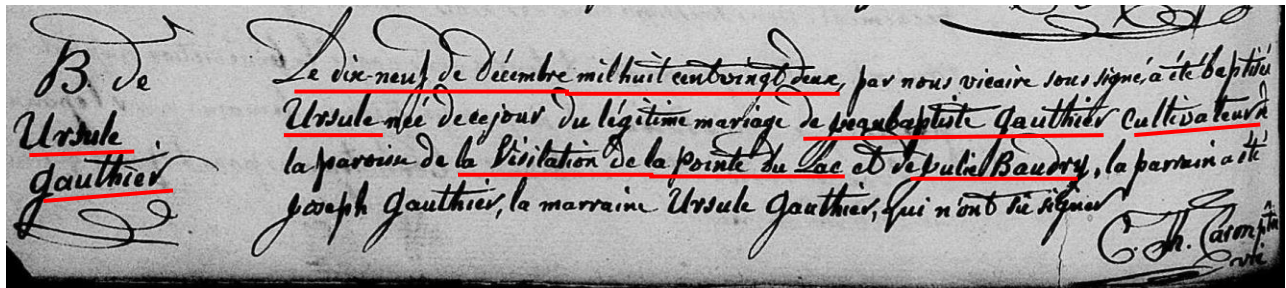 B de
Ursule
Gauthier
Le dix-neuf de décembre mil huit cent vingt deux, par nous vicaire sous signé, a été baptisée
Ursule née de ce jour du légitime mariage de jean baptiste Gauthier Cultivateur d
la paroisse de la Visitation de la pointe du Lac et de julie Baudry, la parrain a été
joseph Gauthier, la marraine Ursule Gauthier, qui n'ont su signer
C. Th. Caron ptre
vic